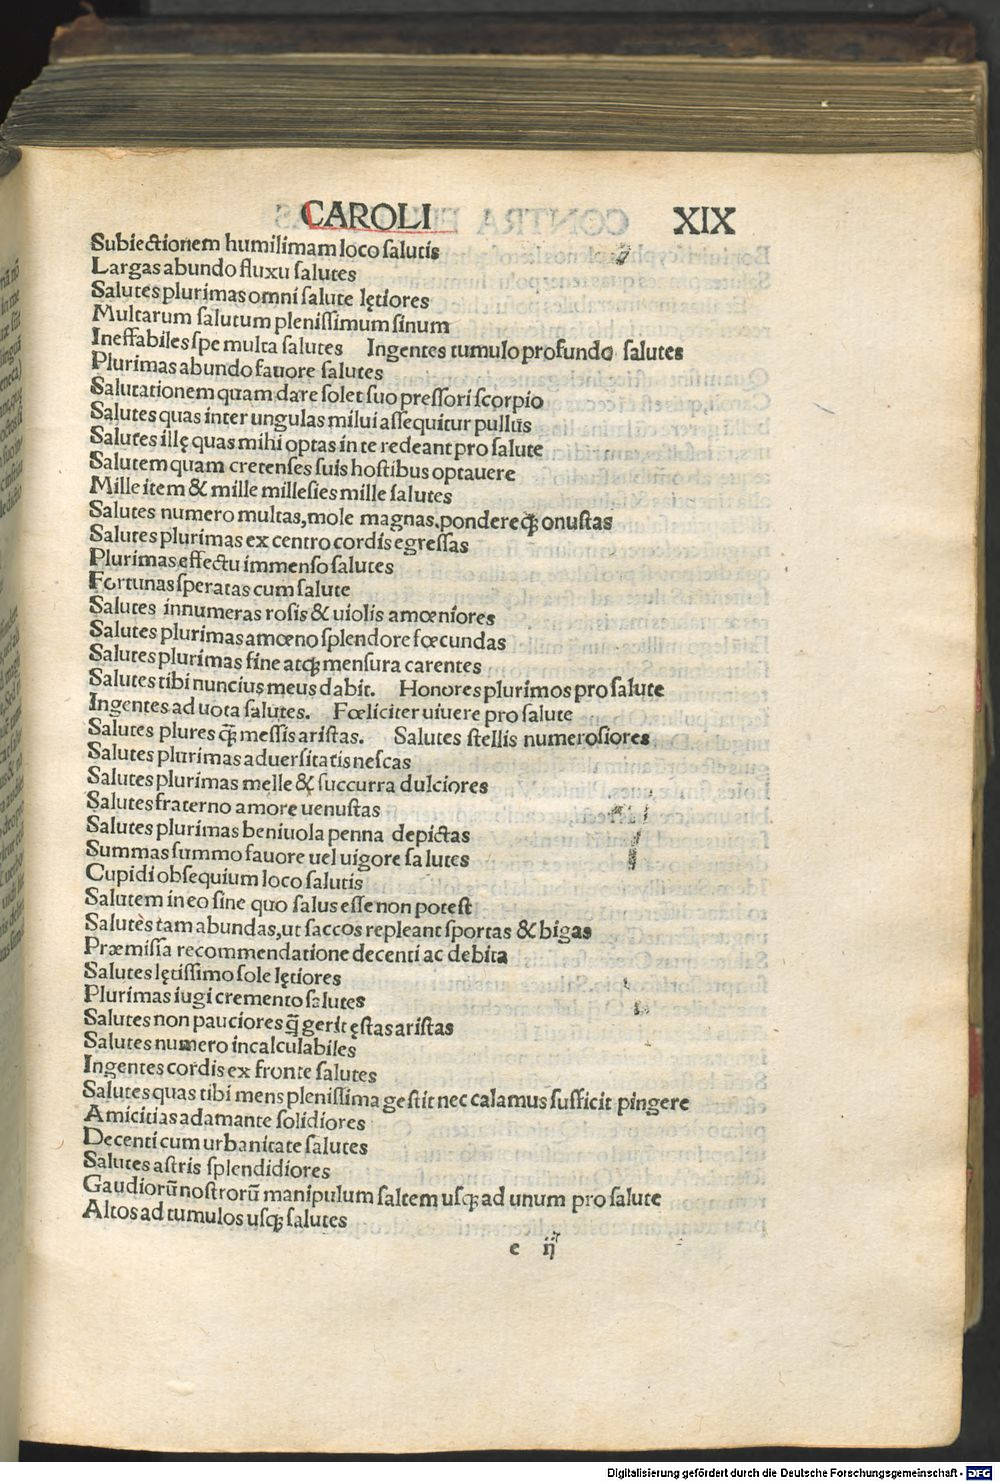 CAROLI XIX
Subiectionem humilimam loco salutis
Largas abundo fluxu salutes
Salutes plurimas omni salute lętiores
Multarum salutum plenissimum sinum
Ineffabiles spe multa salutes Ingentes tumulo profundo salutes
Plurimas abundo fauore salutes
Salutationem quam dare solet suo pressori scorpio
Salutes quas inter ungulas milui assequitur pullus
Salutes illę quas mihi optas in te redeant pro salute
Salutem quam cretenses suis hostibus optauere
Mille item & mille millesies mille salutes
Salutes numero multas, mole magnas, pondereq; onustas
Salutes plurimas ex centro cordis egressas
Plurimas effectu immenso salutes
Fortunas speratas cum salute
Salutes innumeras rosis & uiolis amœniores
Salutes plurimas amœno splendore fœcundas
Salutes plurimas fine atq; mensura carentes
Salutes tibi nuncius meus dabit. Honores plurimos pro salute
Ingentes ad uota salutes. Fœliciter uiuere pro salute
Salutes plures q̃ messis aristas. Salutes stellis numerosiores
Salutes plurimas aduersitatis nescas
Salutes plurimas melle & succurra dulciores
Salutes fraterno amore uenustas
Salutes plurimas beniuola penna depictas
Summas summo fauore uel uigore salutes
Cupidi obsequium loco salutis
Salutem in eo sine quo salus esse non potest
Salutes tam abundas, ut saccos repleant sportas & bigas
Præmissa recommendatione decenti ac debita
Salutes lętissimo sole lętiores
Plurimas iugi cremento salutes
Salutes non pauciores q̃ gerit ęstas aristas
Salutes numero incalculabiles
Ingentes cordis ex fronte salutes
Salutes quas tibi mens plenissima gestit nec calamus sufficit pingere
Amicitias adamante solidiores
Decenti cum urbanitate salutes
Salutes astris splendidiores
Gaudiorū nostrorū manipulum saltem usq; ad unum pro salute
Altos ad tumulos usq; salutes
e ij
Digitalisierung gefördert durch die Deutsche Forschungsgemeinschaft - DFG